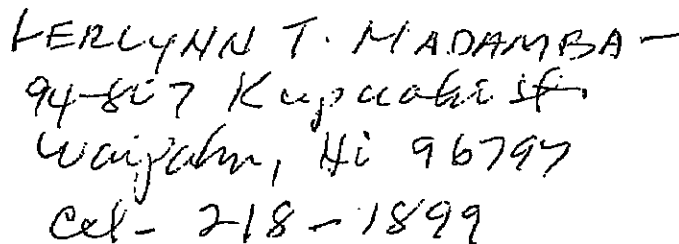 FERLYNN T. MADAMBA -
94-807 Kupuohi st.
Waipahu, Hi 96797
Cel - 218-1899